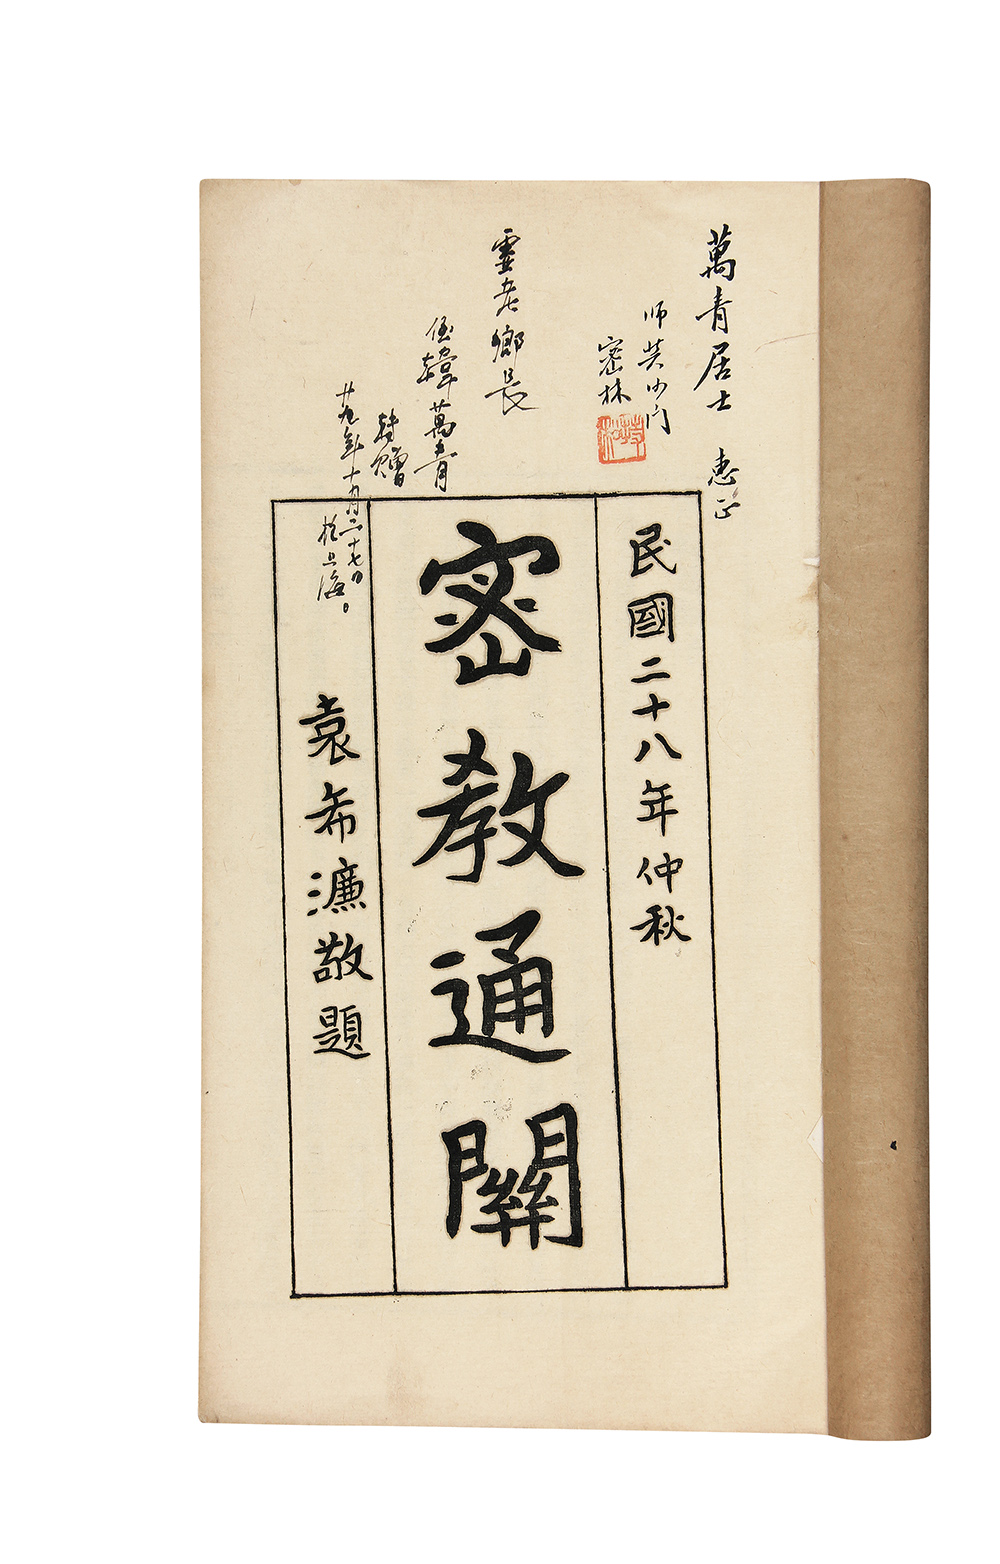 萬青居士 惠正
师奘沙门
密林
持松
老鄉長
侄韓萬青
轉贈
廿九年十月二十七日
於上海。
民國二十八年仲秋
密教通關
袁希濂敬題